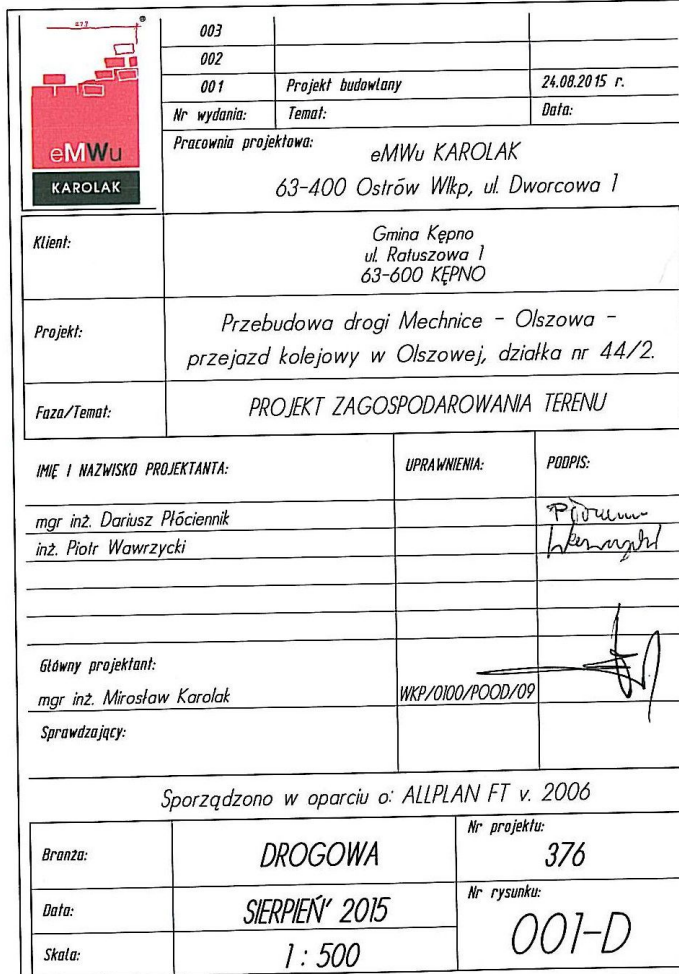 eMWu
KAROLAK
003
002
001 Projekt budowlany 24.08.2015 r.
Nr wydania: Temat: Data:
Pracownia projektowa:
eMWu KAROLAK
63-400 Ostrów Wlkp, ul. Dworcowa 1
Klient:
Gmina Kępno
ul. Ratuszowa 1
63-600 KĘPNO
Projekt:
Przebudowa drogi Mechnice - Olszowa -
przejazd kolejowy w Olszowej, działka nr 44/2.
Faza/Temat: PROJEKT ZAGOSPODAROWANIA TERENU
IMIĘ I NAZWISKO PROJEKTANTA: UPRAWNIENIA: PODPIS:
mgr inż. Dariusz Płóciennik
inż. Piotr Wawrzycki
Główny projektant:
mgr inż. Mirosław Karolak WKP/0100/POOD/09
Sprawdzający:
Sporządzono w oparciu o: ALLPLAN FT v. 2006
Branża: DROGOWA
Nr projektu:
376
Data: SIERPIEŃ' 2015
Skala: 1 : 500
Nr rysunku:
001-D